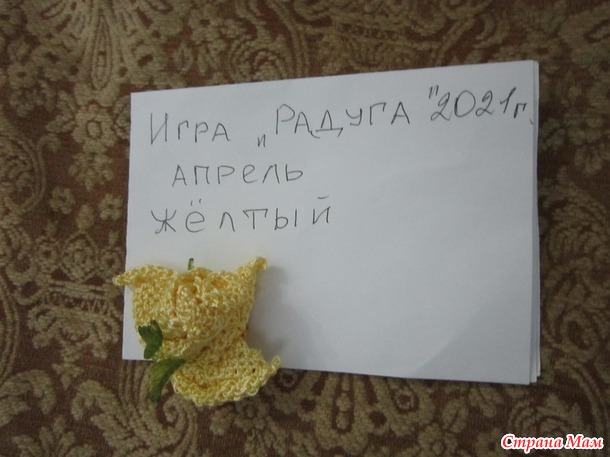 Игра „Радуга" 2021г.
апрель
жёлтый
Страна Мам